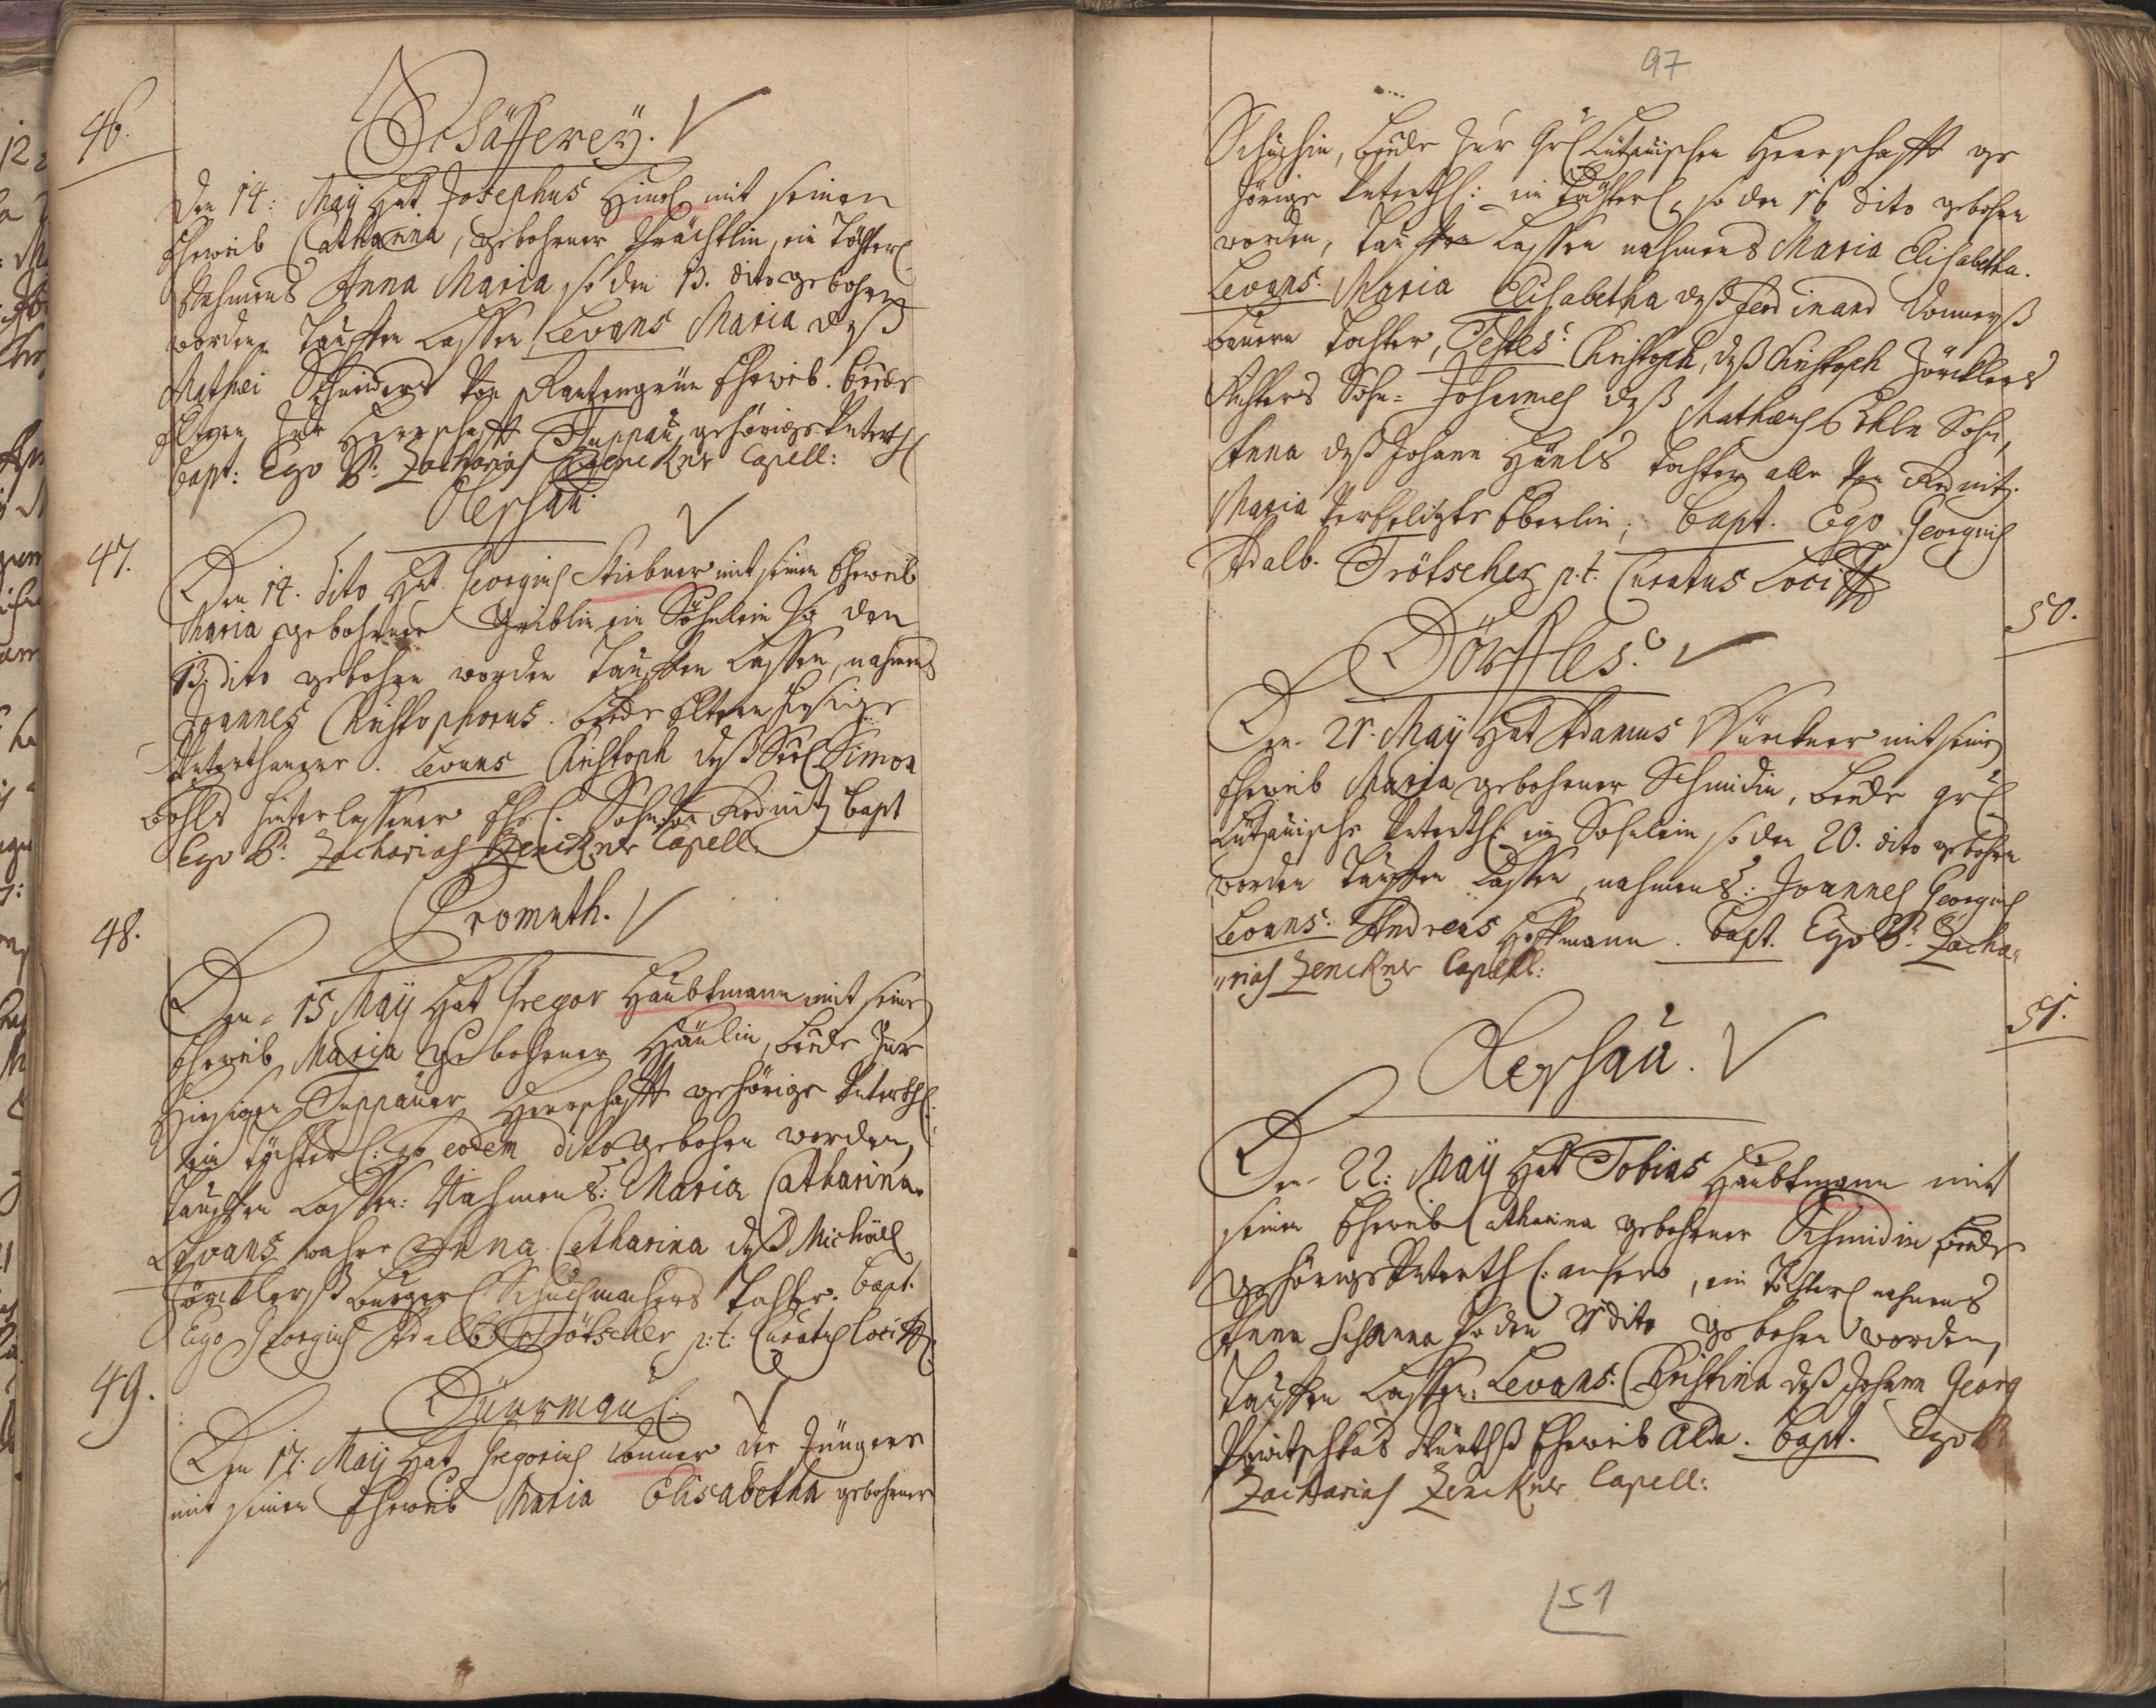 46.
Schäfferey.
Den 14: May Hat Josephus Himl mit seinen
Eheweib Catharina, gebohrner Trächtlin, ein Töchterl
Nahmens Anna Maria so den 13. dito gebohren
worden Tauffen Lassen, Levans Maria deß
Mathei Schneiders von Rantengrün Eheweib. beede
Eltern zur Herrschafft Duppau gehörige Unterth
bapt: Ego P: Zacharias Zenckner Capell:
Olepschau
47.
Den 14. dito Hat Georgius Stiebner mit seinen Eheweib
Maria gebohrner Griblin ein Söhnlein so den
13 dito gebohren worden Tauffen Lassen, nahmens
Joannes Christophorus. beede Eltern hiesige
Unterthaner. Levans Christoph deß Seel. Simon
Pohls hinterlassener Ehel: Sohn von Rednitz bapt
Ego P: Zacharias Zenckner Capell:
Promuth.
48.
Den 15 May Hat Gregor Haubtmann mit seine
Eheweib Maria Gebohrner Häulin, beede zur
Hiesigen Duppauer Herrschafft gehörige Unterth:
ein Töchterl: so eodem dito gebohren worden,
Tauffen Lassen: Nahmens: Maria Catharina.
Levans wahre Anna Catharina deß Michäel
Törcklerß burgerl Schuchmachers Tochter. bapt.
Ego Georgius Adalb Trötscher p:t: Curatus Loci
49.
Dürrmaul:
Den 17. May Hat Gregorius Donner der Jüngere
mit seinen Eheweib Maria Elisabetha gebohrner
97
Schuchin, beede zur Grl Lützauischen Herrschafft ge
hörige Unterth: ein Töchterl, so den 16 dito gebohren
worden, Tauffen Lassen nahmens Maria Elisabetha.
Levans: Maria Elisabetha deß Ferdinand Donnerß
bauern Tochter, Testes: Christoph, deß Christoph Törcklers
Richters Sohn= Johannes deß Mathaeus Sohn,
Anna deß Johann Hänls Tochter alle von Rednitz.
Maria Eberlin; bapt. Ego Georgius
Adalb. Trötscher p.t. Curatus Loci
50.
Dörffles.
Den 21. May Hat Adamus Würckner mit seine
Eheweib Maria gebohrner Schmidin, beede grl
Lützauische Unterth: ein Söhnlein so den 20. dito gebohren
worden Tauffen Lassen, nahmens: Joannes Georgius
Levans: Andreas Hoffmann. bapt. Ego P: Zacha"
"rias Zenckner Capell:
51.
Olepschau.
Den 22: May Hat Tobias Haubtmann mit
seinen Eheweib Catharina gebohrner Schmidin beede
gehörige Unterth: anhero, ein Töchterl nahmens
Anna so den 21 dito gebohren worden,
Tauffen Lassen: Levans: Christina deß Johann Georg
Würthß Eheweib alda. bapt. Ego P:
Zacharias Zenckner Capell:
51